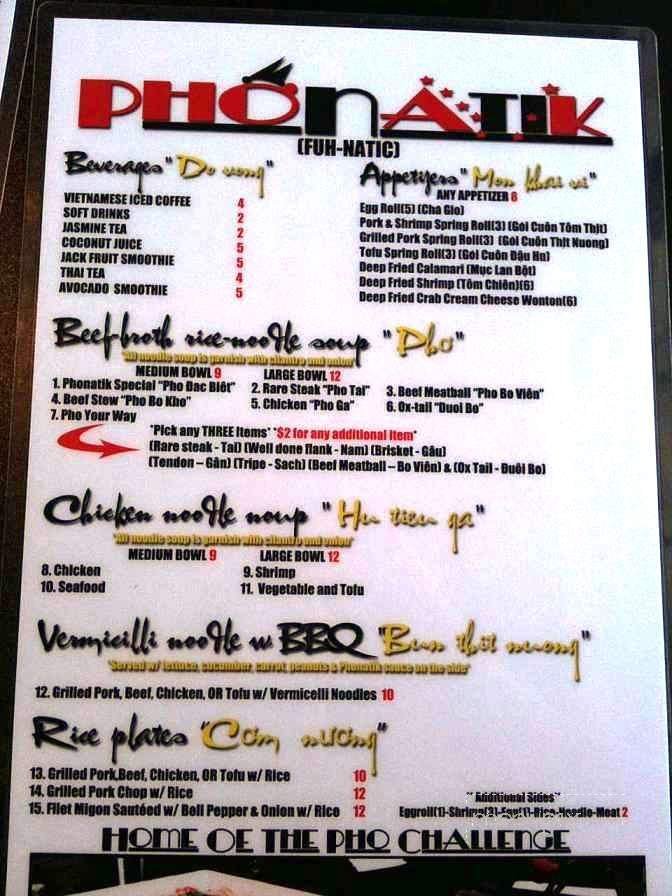 PHỞNATIK
(FUH-NATIC)
Beverages "Do uong"
VIETNAMESE ICED COFFEE 4
SOFT DRINKS 2
JASMINE TEA 2
COCONUT JUICE 5
JACK FRUIT SMOOTHIE 5
THAI TEA 4
AVOCADO SMOOTHIE 5
Appetyers "Mon khai vi"
ANY APPETIZER 6
Egg Roll(5) (Cha Gio)
Pork & Shrimp Spring Roll(3) (Goi Cuôn Tôm Thịt)
Grilled Pork Spring Roll(3) (Goi Cuôn Thịt Nuong)
Tofu Spring Roll(3) (Goi Cuôn Đậu Hu)
Deep Fried Calamari (Mục Lan Bột)
Deep Fried Shrimp (Tôm Chiên)(6)
Deep Fried Crab Cream Cheese Wonton(6)
Beef-broth rice-noodle soup "Pho"
"All noodle soup is garnish with cilantro and onion"
MEDIUM BOWL 9 LARGE BOWL 12
1. Phonatik Special "Pho Dac Biêt" 2. Rare Steak "Pho Tai" 3. Beef Meatball "Pho Bo Viên"
4. Beef Stew "Pho Bo Kho" 5. Chicken "Pho Ga" 6. Ox-tail "Duoi Bo"
7. Pho Your Way
*Pick any THREE Items* *$2 for any additional item*
(Rare steak - Tai) (Well done flank - Nam) (Brisket - Gâu)
(Tendon – Gân) (Tripe - Sach) (Beef Meatball – Bo Viên) & (Ox Tail - Đuôi Bo)
Chicken noodle noup "Hu tieu ga"
"All noodle soup is garnish with cilantro and onion"
MEDIUM BOWL 9 LARGE BOWL 12
8. Chicken 9. Shrimp
10. Seafood 11. Vegetable and Tofu
Vermicilli noodle w BBQ "Bun thit nuong"
"Served w/ lettuce, cucumber, carrot, peanuts & Phonatik sauce on the side"
12. Grilled Pork, Beef, Chicken, OR Tofu w/ Vermicelli Noodles 10
Rice plates "Com nuong"
13. Grilled Pork,Beef, Chicken, OR Tofu w/ Rice 10
14. Grilled Pork Chop w/ Rice 12
15. Filet Migon Sautéed w/ Bell Pepper & Onion w/ Rice 12
"Additional Sides"
Eggroll(1)-Shrimp(3)-Egg(1)-Rice-Noodle-Meat 2
HOME OF THE PHO CHALLENGE